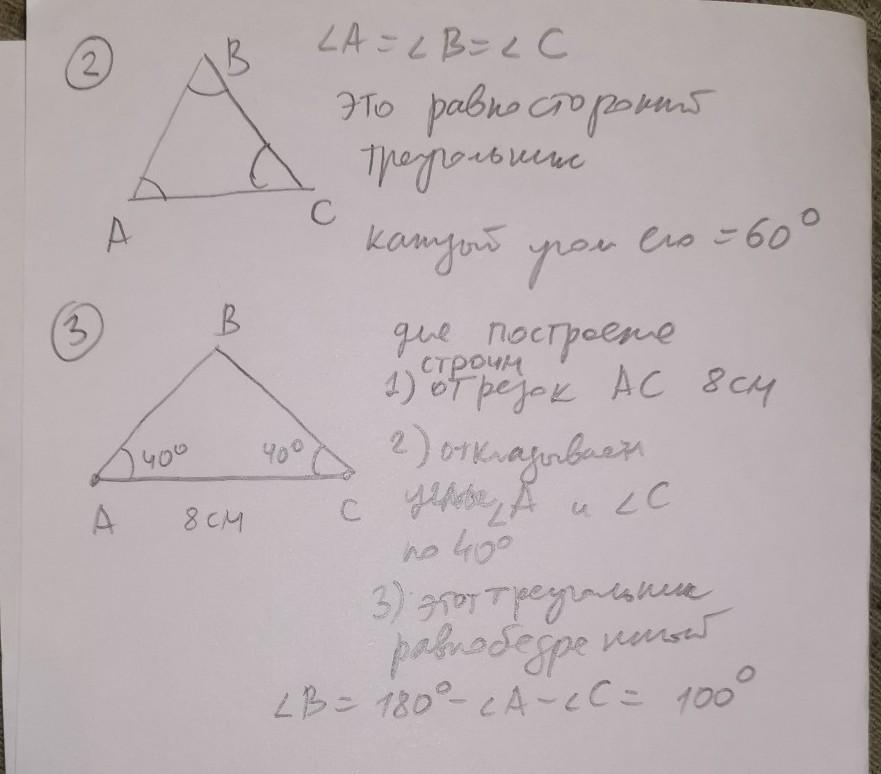 2
B
∠A = ∠B = ∠C
это равносторонний
треугольник
A
C
каждый угол его = 60°
3
B
для построение
строим
1) отрезок AC 8см
40°
40°
2) откладываем
A
8см
C
углы ∠A и ∠C
по 40°
3) этот треугольник
равнобедренный
∠B = 180° - ∠A - ∠C = 100°